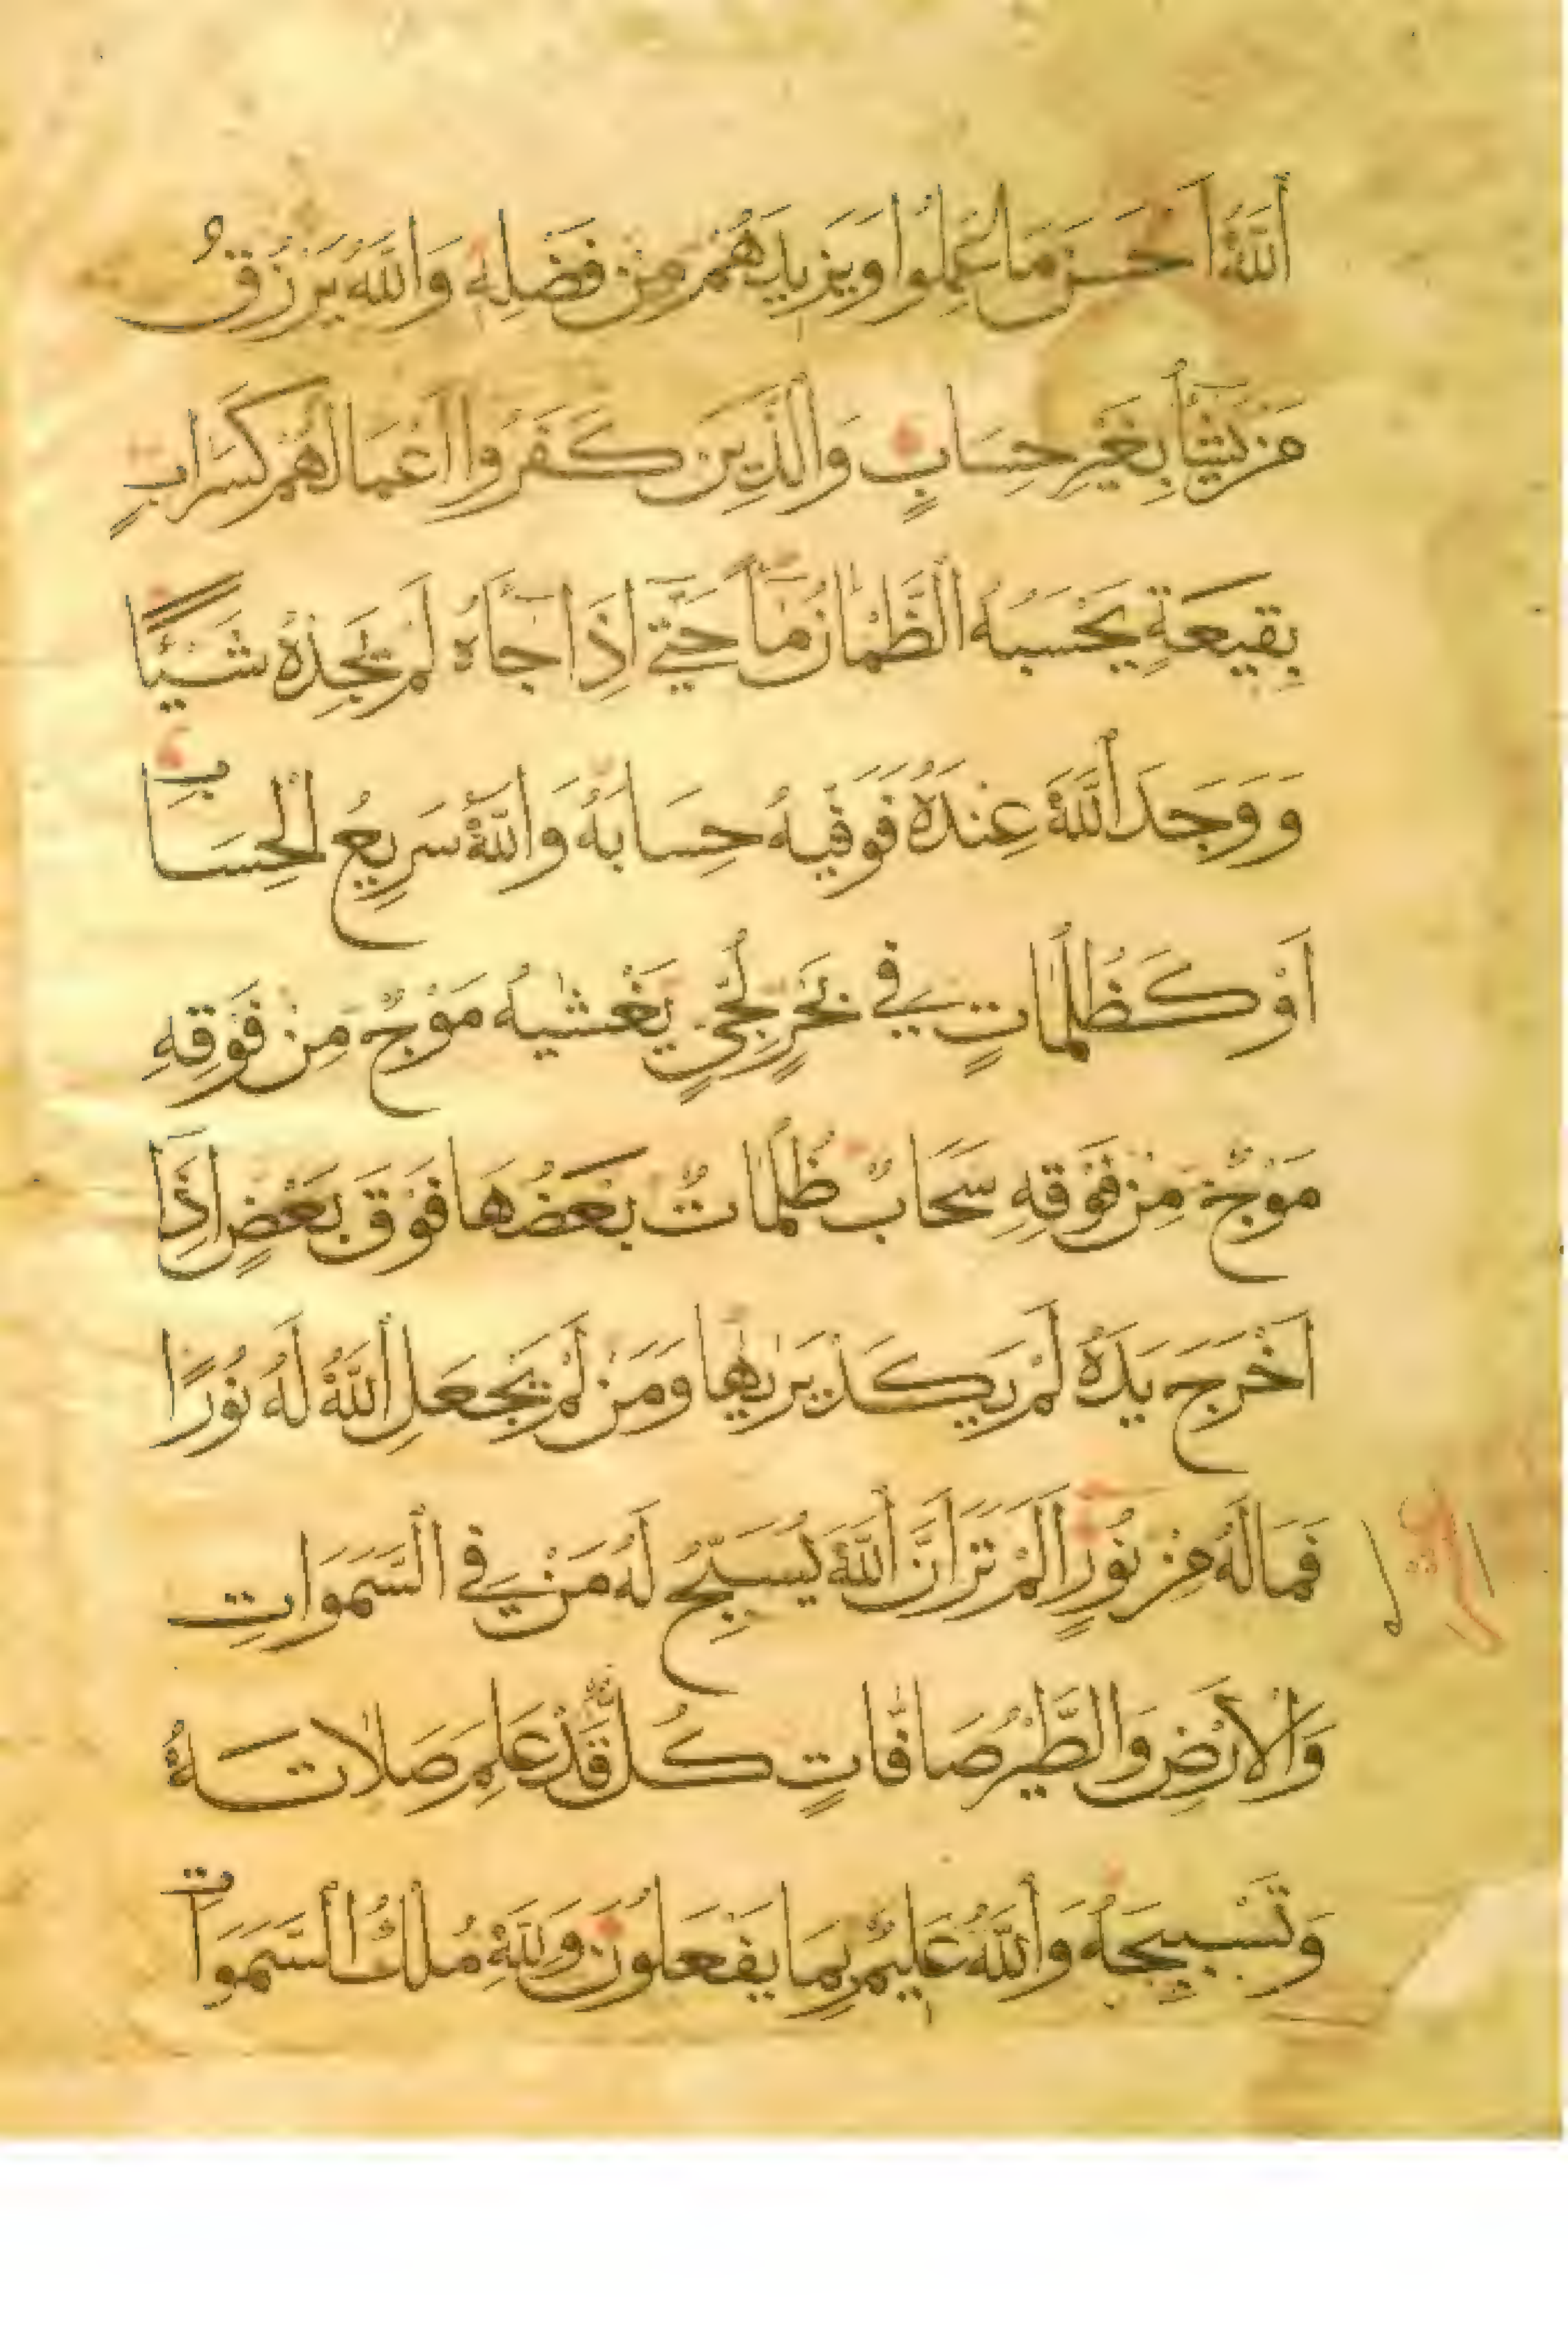 اَللّٰهُ اَحْسَنَ مَا عَمِلُوا وَيَزِيدَهُمْ مِنْ فَضْلِهِ وَاللّٰهُ يَرْزُقُ
مَنْ يَشَآءُ بِغَيْرِ حِسَابٍ وَالَّذِينَ كَفَرُوا اَعْمَالُهُمْ كَسَرَابٍ
بِقِيعَةٍ يَحْسَبُهُ الظَّمْاٰنُ مَآءً حَتّٰى اِذَا جَآءَهُ لَمْ يَجِدْهُ شَيْئًا
وَوَجَدَ اللّٰهَ عِنْدَهُ فَوَفّٰيهُ حِسَابَهُ وَاللّٰهُ سَرِيعُ الْحِسَابِ
اَوْ كَظُلُمَاتٍ فِي بَحْرٍ لُجِّيٍّ يَغْشٰيهُ مَوْجٌ مِنْ فَوْقِهِ
مَوْجٌ مِنْ فَوْقِهِ سَحَابٌ ظُلُمَاتٌ بَعْضُهَا فَوْقَ بَعْضٍ اِذَآ
اَخْرَجَ يَدَهُ لَمْ يَكَدْ يَرٰيهَا وَمَنْ لَمْ يَجْعَلِ اللّٰهُ لَهُ نُورًا
فَمَا لَهُ مِنْ نُورٍ اَلَمْ تَرَ اَنَّ اللّٰهَ يُسَبِّحُ لَهُ مَنْ فِي السَّمَوَاتِ
وَالْاَرْضِ وَالطَّيْرُ صَافَّاتٍ كُلٌّ قَدْ عَلِمَ صَلَاتَهُ
وَتَسْبِيحَهُ وَاللّٰهُ عَلِيمٌ بِمَا يَفْعَلُونَ وَلِلّٰهِ مُلْكُ السَّمَوَاتِ